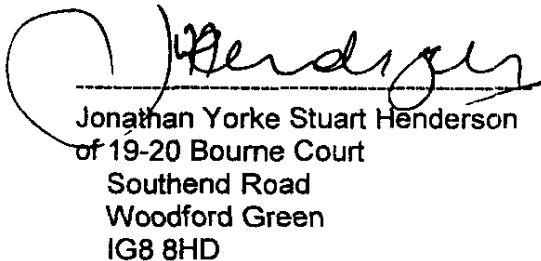 Jonathan Yorke Stuart Henderson
of 19-20 Bourne Court
Southend Road
Woodford Green
IG8 8HD